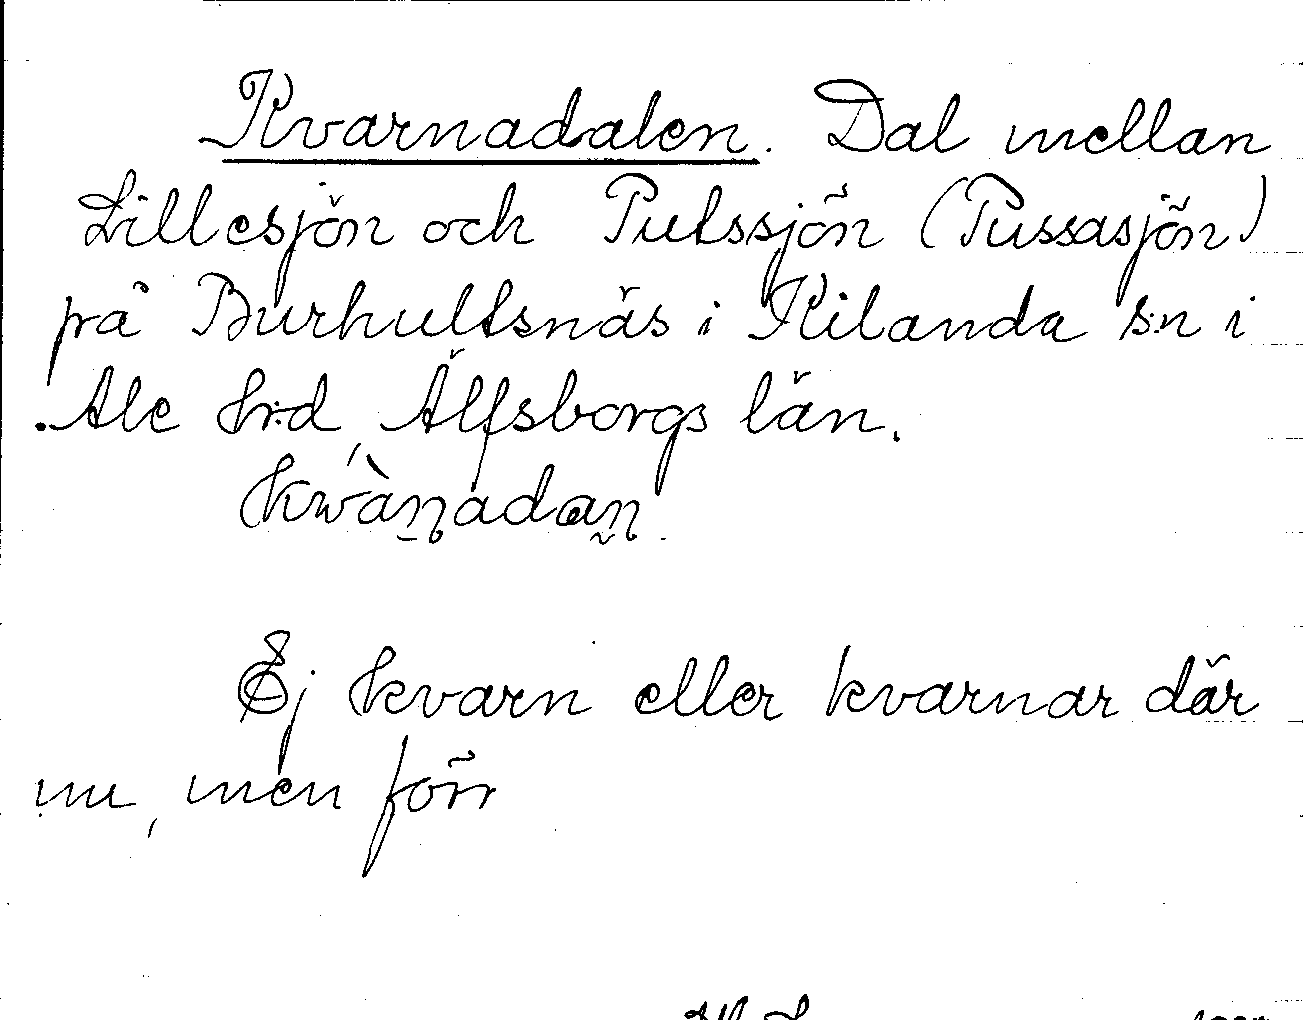 Kvarnadalen. Dal mellan
Lillesjön och Putssjön (Pussasjön)
på Burhultsnäs i Kilanda s:n i
Ale h:d, Älfsborgs län.
kwànadan.
Ej kvarn eller kvarnar där
nu, men förr